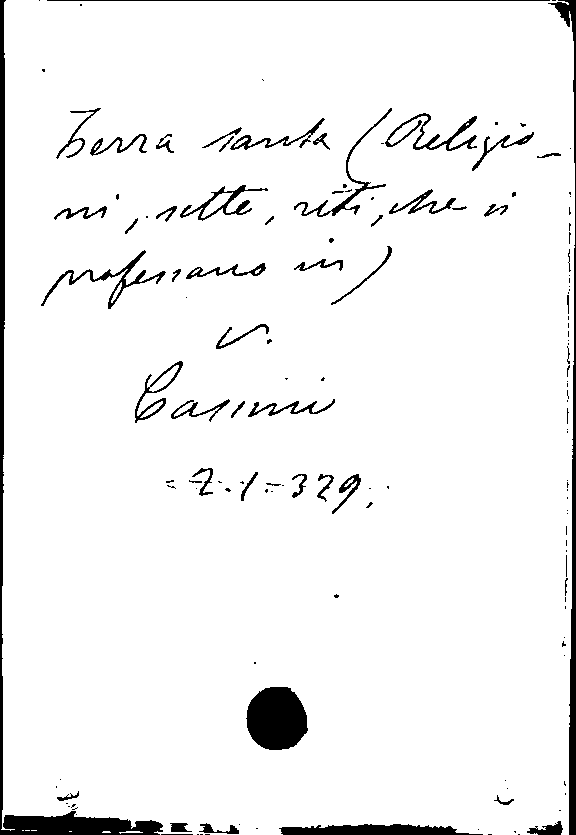 Terra santa (Religio-
ni, sette, riti, che si
professano in)
v.
Cassini
= Z.1.=329.